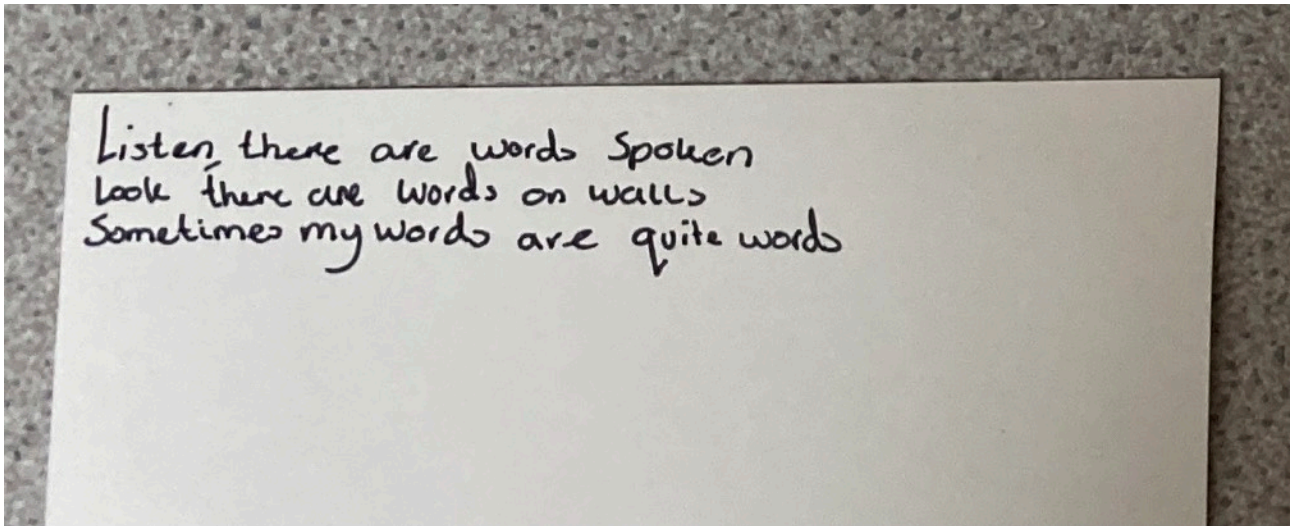 Listen, there are words spoken
Look there are words on walls
Sometimes my words are quite words